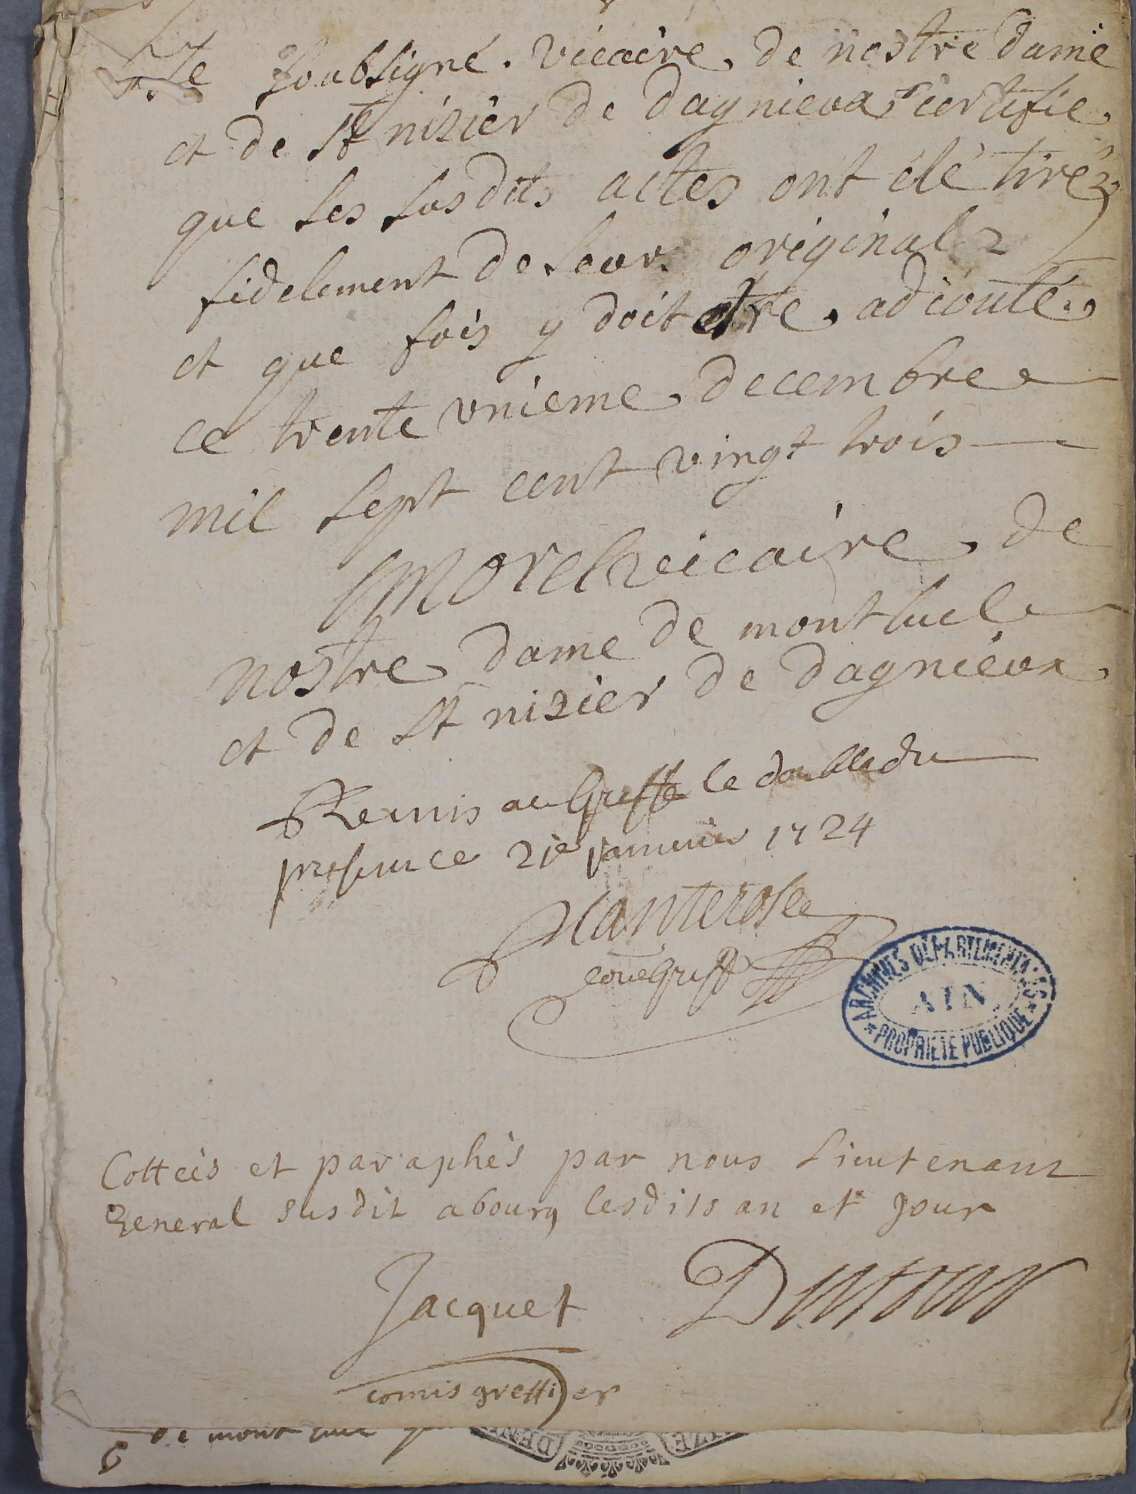 Je soubsigné vicaire de nostre dame
et de St nizier de dagnieux certifie
que les susdits actes ont été tiréz
fidelement de leur original
et que fois y doit etre adiouté
ce trente unieme decembre
mil sept cent vingt trois
Morel vicaire de
nostre dame de montluel
et de St nizier de dagnieux
Remis au Greffe le double du
presence 21e janvier 1724
Planterose
Greff
ARCHIVES DÉPARTEMENTALES
AIN
PROPRIÉTÉ PUBLIQUE
Cottées et paraphés par nous Lieutenant
General susdit a bourg lesdits an et Jour
Jacquet Dutour
comis greffier
de mont
6